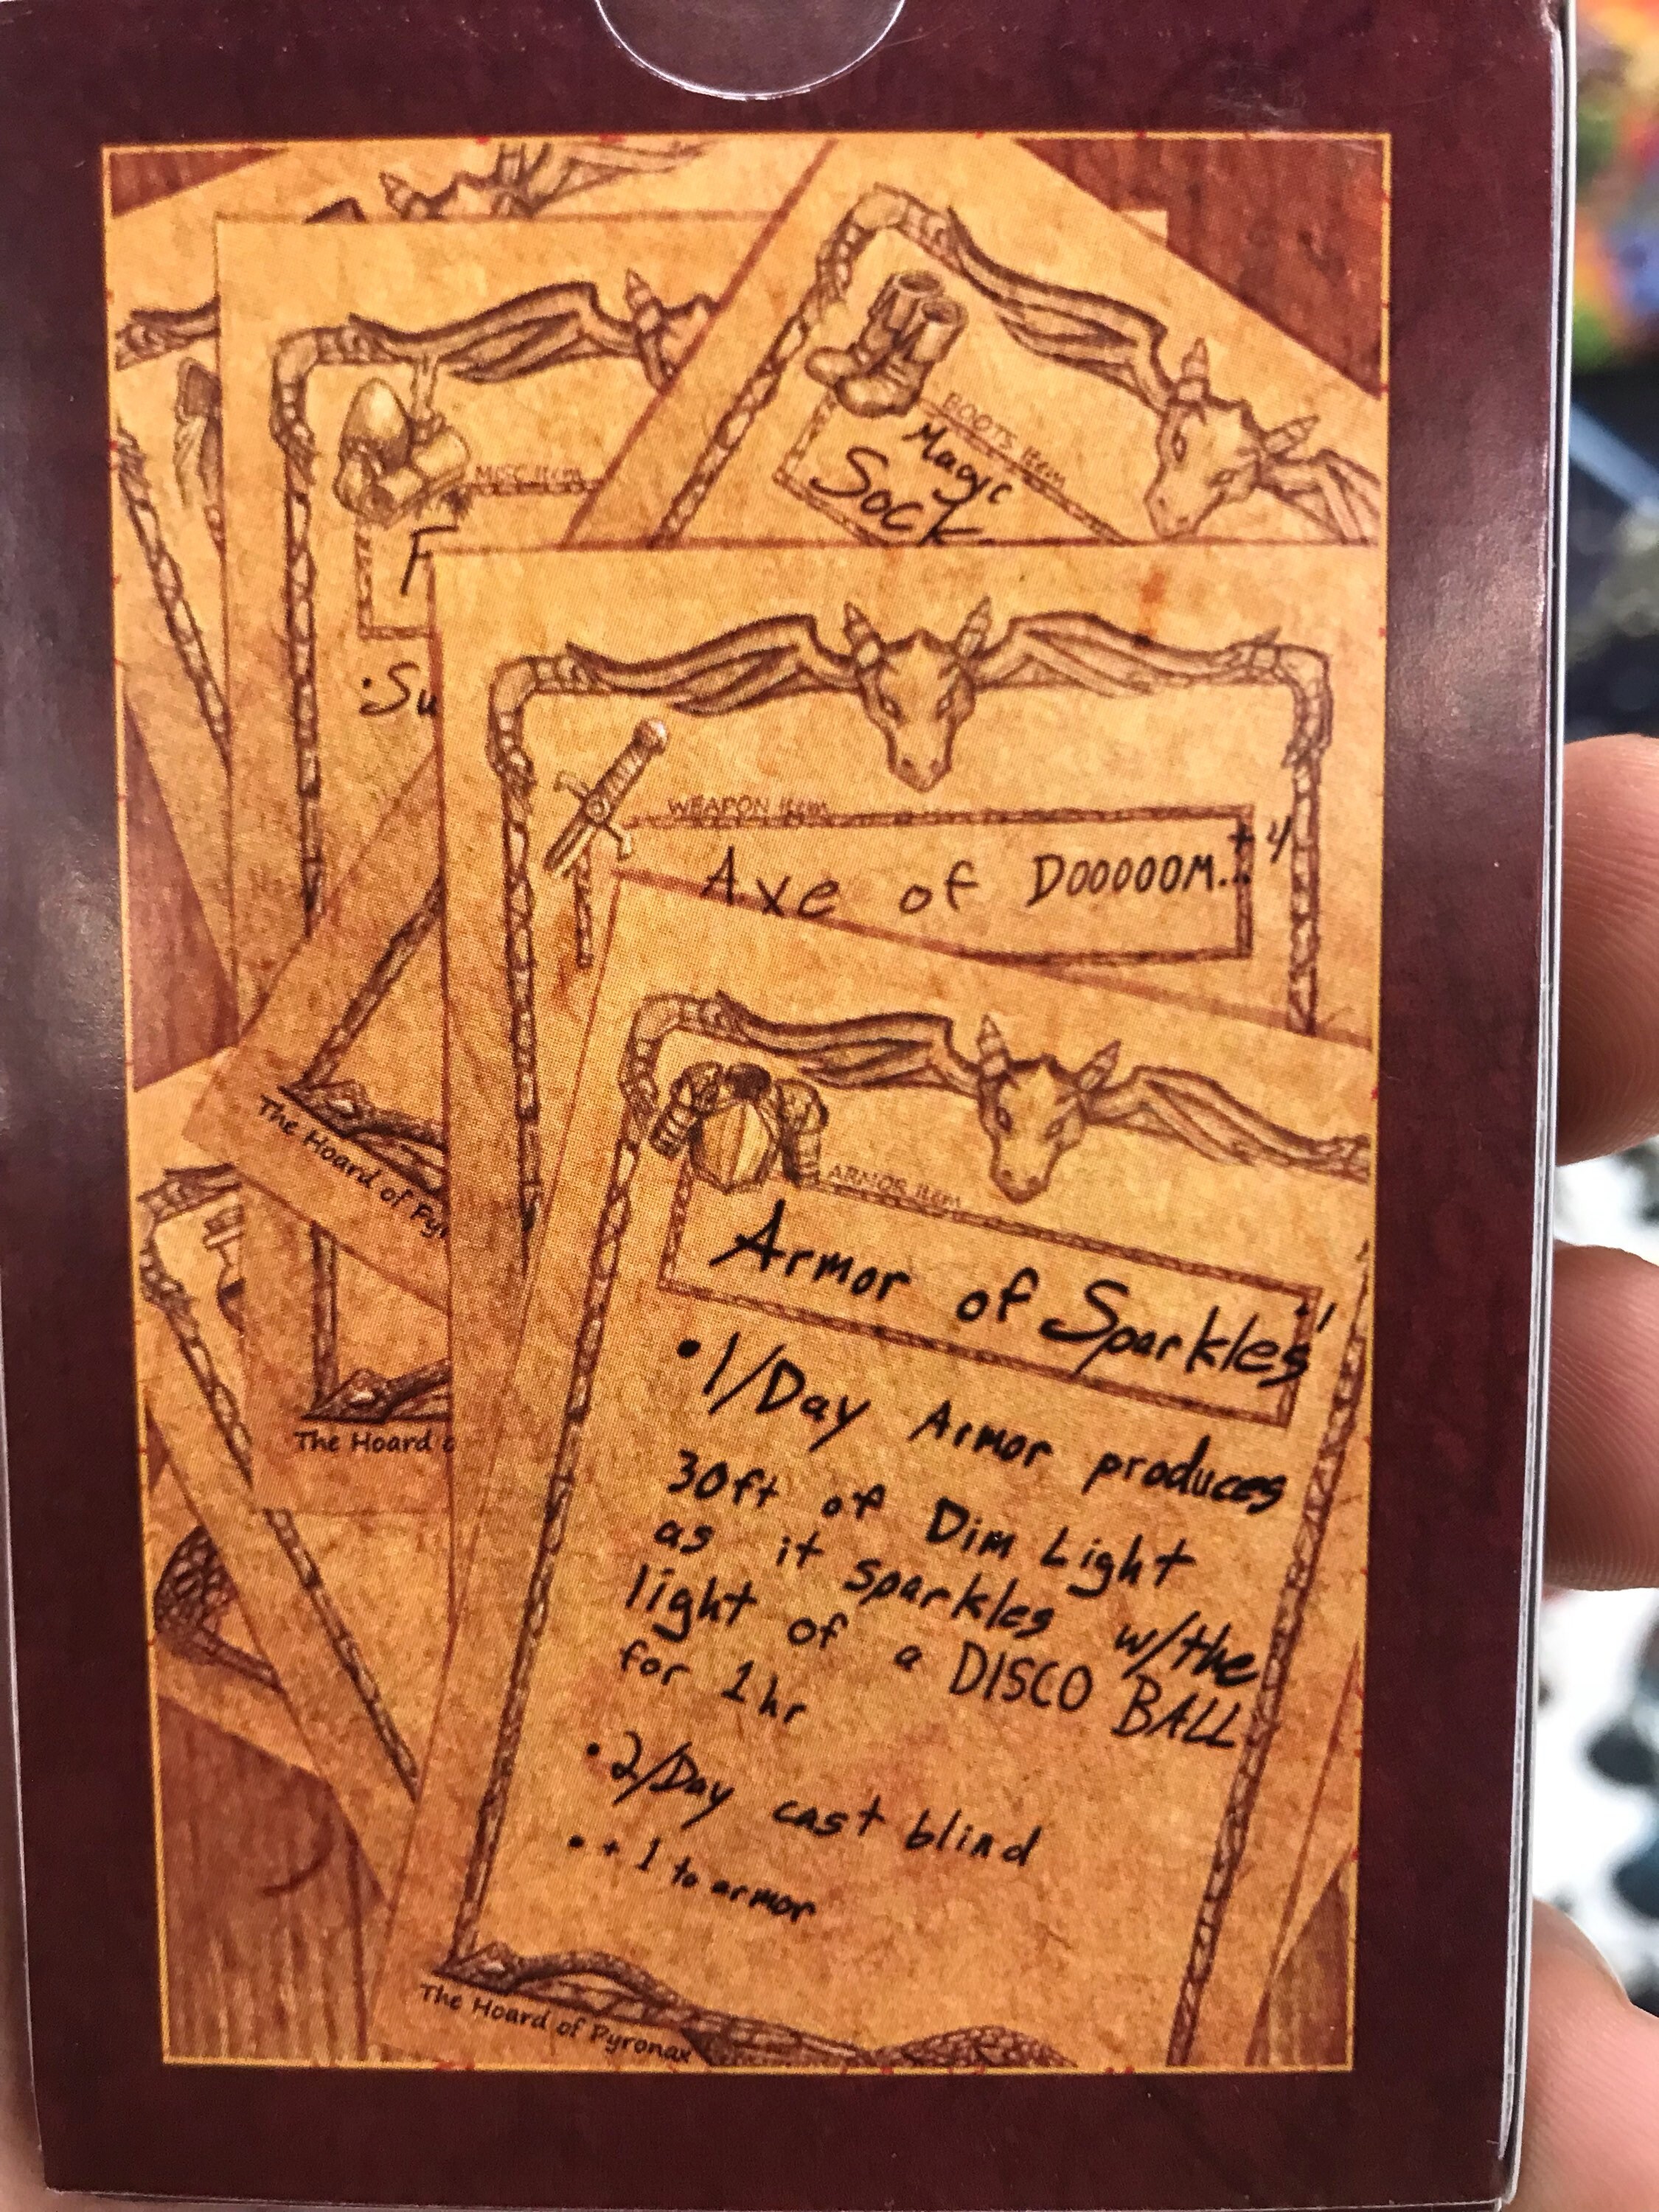 BOOTS Item
Magic
Sock
MISC Item
F
·Su
WEAPON Item
Axe of DOOOOOM... +4
ARMOR Item
Armor of Sparkles +1
•1/Day Armor produces
30ft of Dim Light
as it sparkles w/the
light of a DISCO BALL
for 1hr
•2/Day cast blind
•+1 to armor
The Hoard of Pyr
The Hoard o
The Hoard of Pyronax